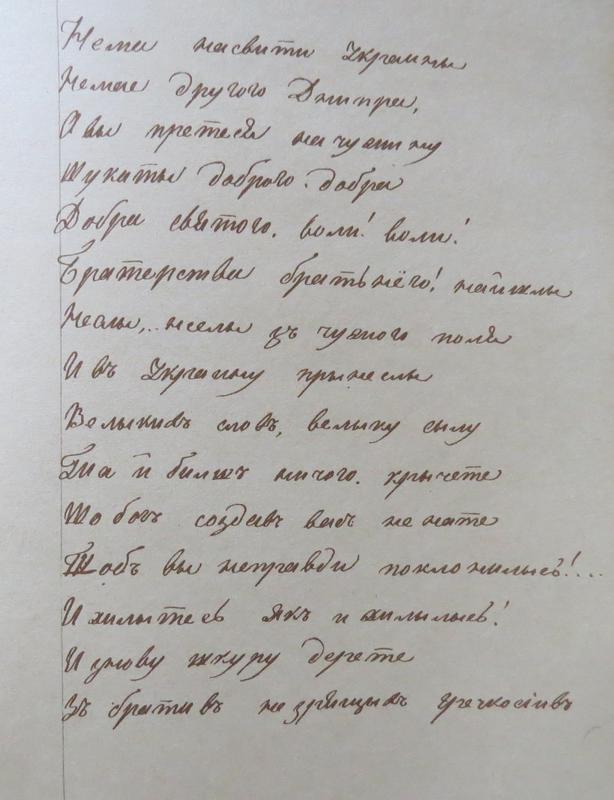 Нема насвити Украины
Немае другого Днипра,
А вы претеся на чужину
Шукаты доброго добра
Добра святого. воли! воли!
Братерства братьнёго! найшлы
Неслы,.. неслы зъ чужого поля
И въ Украину прынеслы
Велыкихъ словъ, велыку сылу
Та й билшъ ничого. крычете
Що богъ создавъ васъ не нате
Щобъ вы неправди поклонилысь!...
И хилытесь якъ и хилылысь!
И знову шкуру дерете
Зъ бративъ незрящыхъ гречкосіивъ